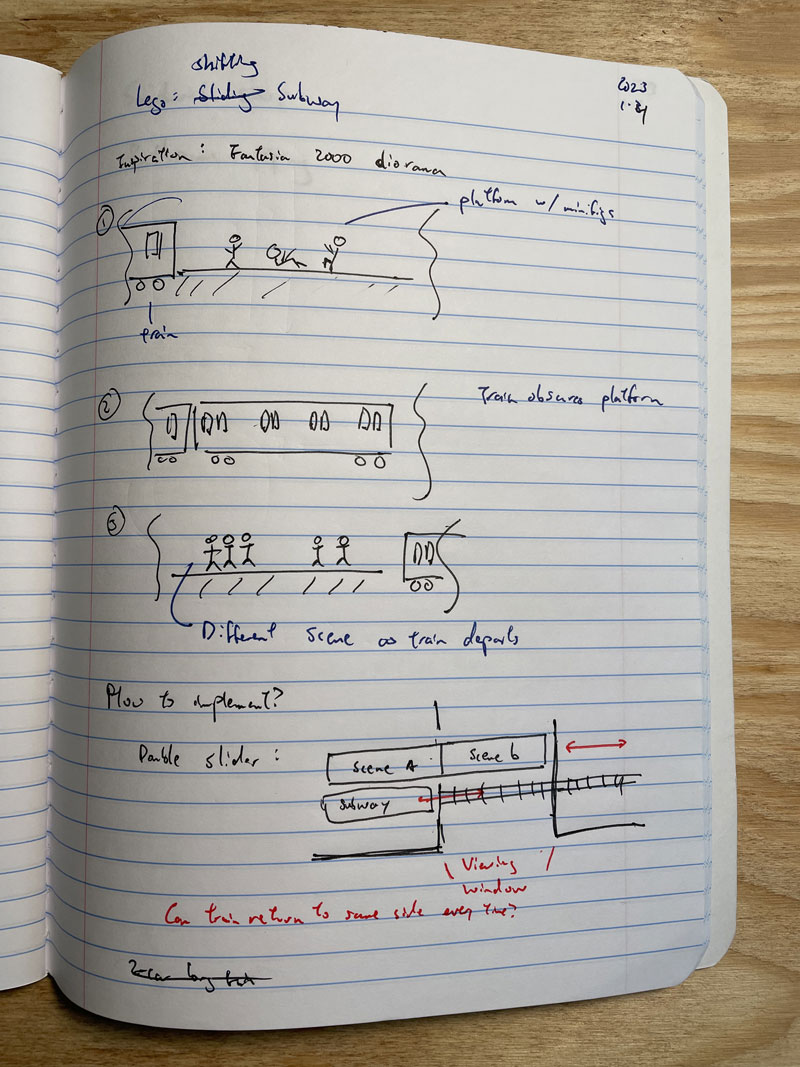 shifting
Lego: Sliding Subway
2023
Inspiration: Fantasia 2000 diorama
① platform w/ minifigs
train
② Train obscures platform
③
Different scene as train departs
How to implement?
Double slider:
Scene A Scene b
Subway
Viewing
window
Can train return to same side every time?
2-car long